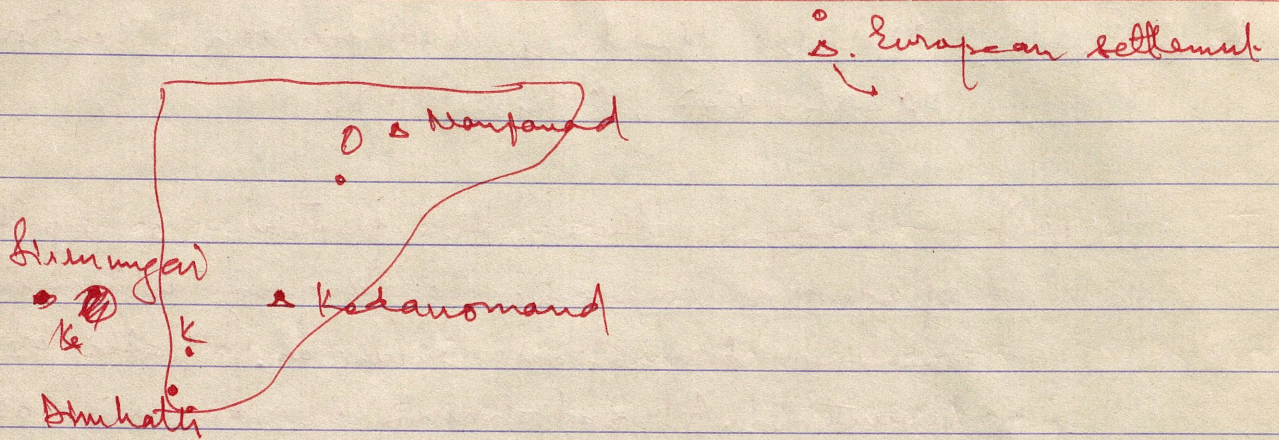 European settlement
O Nanjanad
Sirumugai
Kodanomand
K
K
Dimhatti